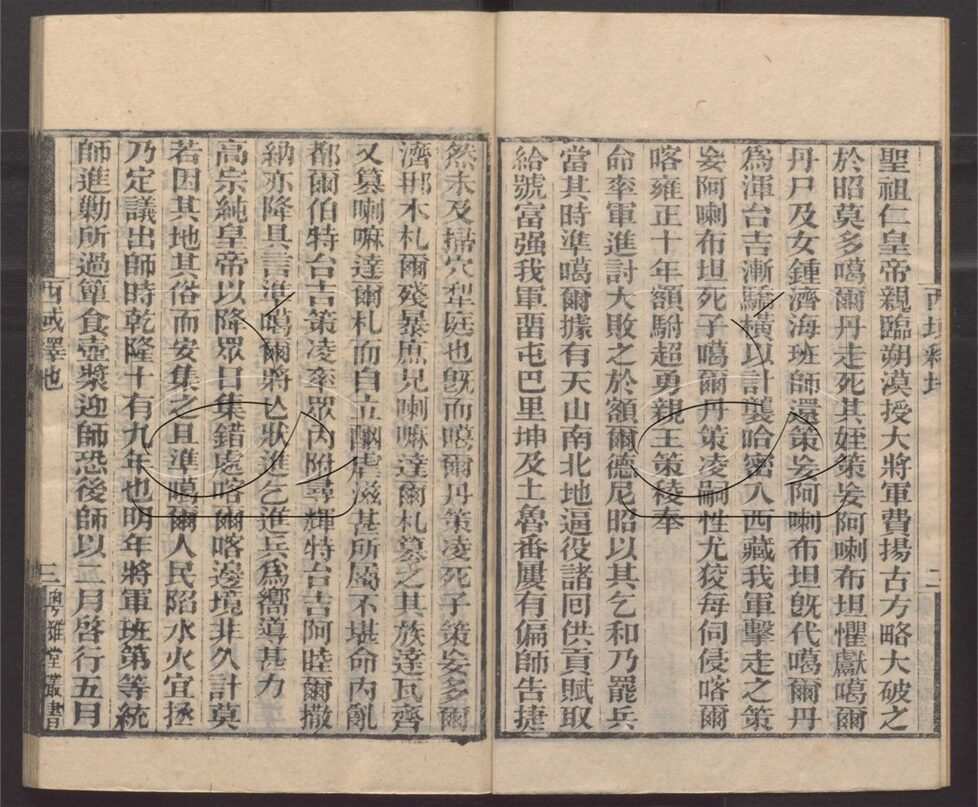 西域釋地
二
聖祖仁皇帝親臨朔漠授大將軍費揚古方略大破之
於昭莫多噶爾丹走死其姪策妄阿喇布坦懼獻噶爾
丹尸及女鍾濟海班師還策妄阿喇布坦旣代噶爾丹
爲渾台吉漸驕橫以計襲哈密入西藏我軍擊走之策
妄阿喇布坦死子噶爾丹策凌嗣性尤狡每伺侵喀爾
喀雍正十年額駙超勇親王策稜奉
命率軍進討大敗之於額爾德尼昭以其乞和乃罷兵
當其時準噶爾據有天山南北地逼役諸囘供貢賦取
給號富强我軍畱屯巴里坤及土魯番屢有偏師告捷
然未及掃穴犁庭也旣而噶爾丹策凌死子策妄多爾
濟那木札爾殘暴庶兄喇嘛達爾札篡之其族達瓦齊
又篡喇嘛達爾札而自立酗虐滋甚所屬不堪命內亂
都爾伯特台吉策凌率眾內附尋輝特台吉阿睦爾撒
納亦降具言準噶爾將亾狀進乞進兵爲嚮導甚力
高宗純皇帝以降眾日集錯處喀爾喀邊境非久計莫
若因其地其俗而安集之且準噶爾人民陷水火宜拯
乃定議出師時乾隆十有九年也明年將軍班第等統
師進勦所過簞食壺漿迎師恐後師以二月啓行五月
西域釋地
三
粵雅堂叢書